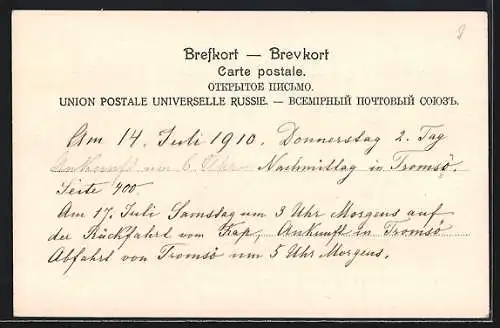 Brefkort — Brevkort
Carte postale.
ОТКРЫТОЕ ПИСЬМО.
UNION POSTALE UNIVERSELLE RUSSIE. — ВСЕМІРНЫЙ ПОЧТОВЫЙ СОЮЗЪ.
Am 14. Juli 1910. Donnerstag 2. Tag
Ankunft um 6. Uhr Nachmittag in Tromsö.
Seite 400
Am 17. Juli Samstag um 3 Uhr Morgens auf
der Rückfahrt vom Kap, Ankunft in Tromsö
Abfahrt von Tromsö um 5 Uhr Morgens.